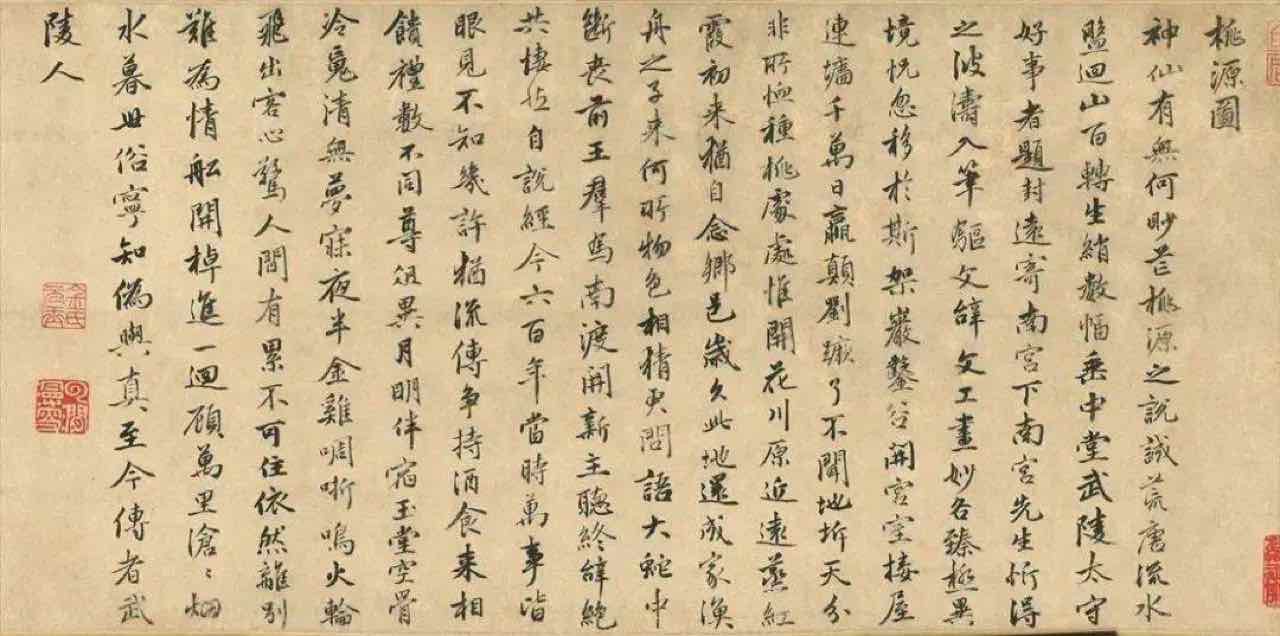 桃源圖
神仙有無何眇芒桃源之說誠荒唐流水
盤迴山百轉生綃數幅垂中堂武陵太守
好事者題封遠寄南宮下南宮先生忻得
之波濤入筆驅文辭文工畫妙各臻極異
境恍忽移於斯架巖鑿谷開宮室接屋
連墻千萬日嬴顛劉蹶了不聞地坼天分
非所恤種桃處處惟開花川原近遠蒸紅
霞初來猶自念鄉邑歲久此地還成家漁
舟之子來何所物色相猜更問語大蛇中
斷喪前王羣馬南渡開新主聽終辭絕
共悽然自說經今六百年當時萬事皆
眼見不知幾許猶流傳爭持酒食来相
饋禮數不同尊俎異月明伴宿玉堂空骨
冷魂清無夢寐夜半金雞啁哳鳴火輪
飛出客心驚人間有累不可住依然離別
難為情船開棹進一迴顧萬里滄〻烟
水暮世俗寧知偽與真至今傳者武
陵人